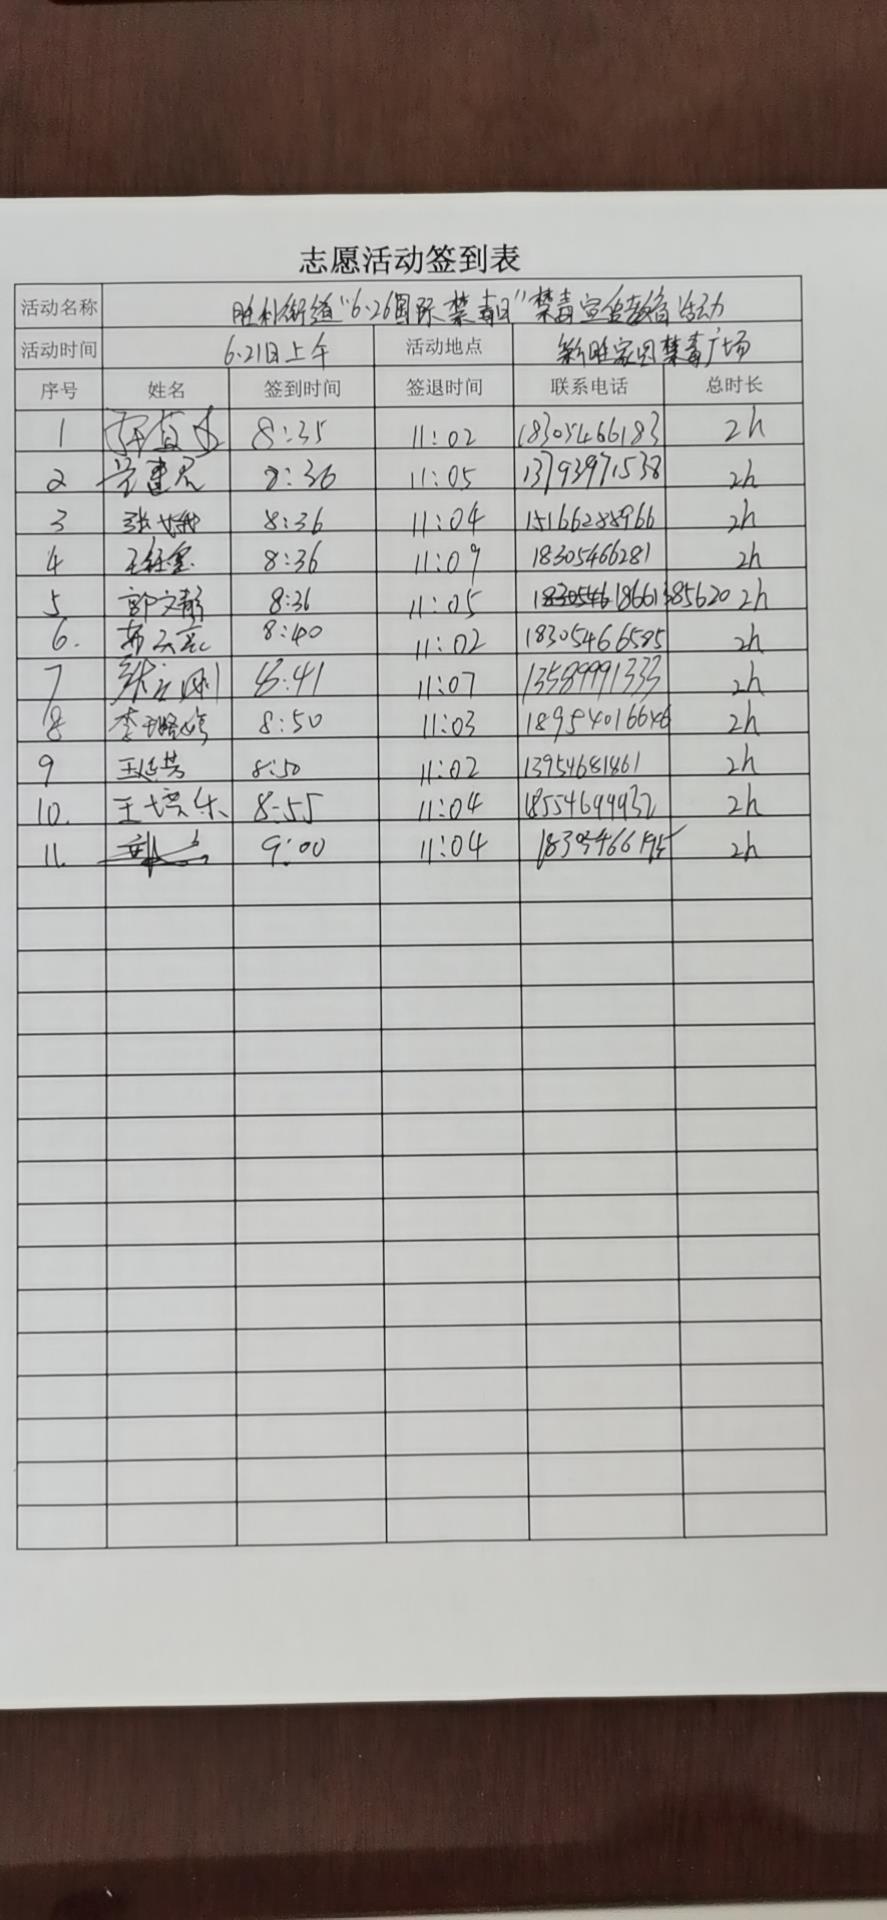 志愿活动签到表
活动名称 胜利街道"6·26国际禁毒日"禁毒宣传活动
活动时间 6.21日上午 活动地点 新胜家园禁毒广场
序号 姓名 签到时间 签退时间 联系电话 总时长
1 8:35 11:02 18305466183 2h
2 8:36 11:05 13793971538 2h
3 8:36 11:04 15166288966 2h
4 8:36 11:09 18305466281 2h
5 郭文静 8:36 11:05 18661385620 2h
6. 8:40 11:02 18305466595 2h
7 张立刚 8:41 11:07 13589991333 2h
8 李璐婷 8:50 11:03 18954016646 2h
9 王延芳 8:50 11:02 13954681861 2h
10. 王培乐 8:55 11:04 18554699932 2h
11. 9:00 11:04 2h